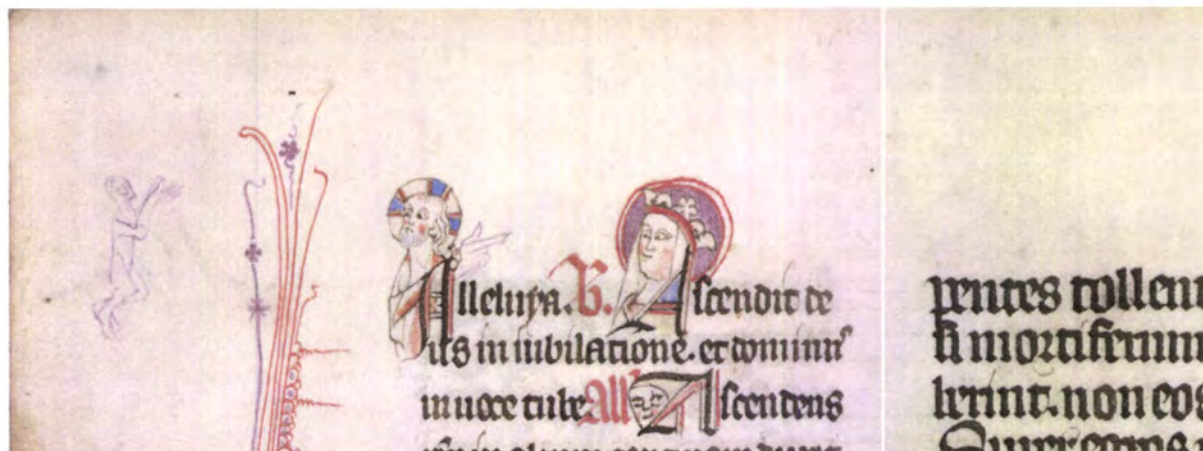 Alleluya. V. Ascendit de
us in iubilatione. et dominus
in uoce tube All' Ascendens
pentes tollen
si mortiferum
berint. non eos
Super egros